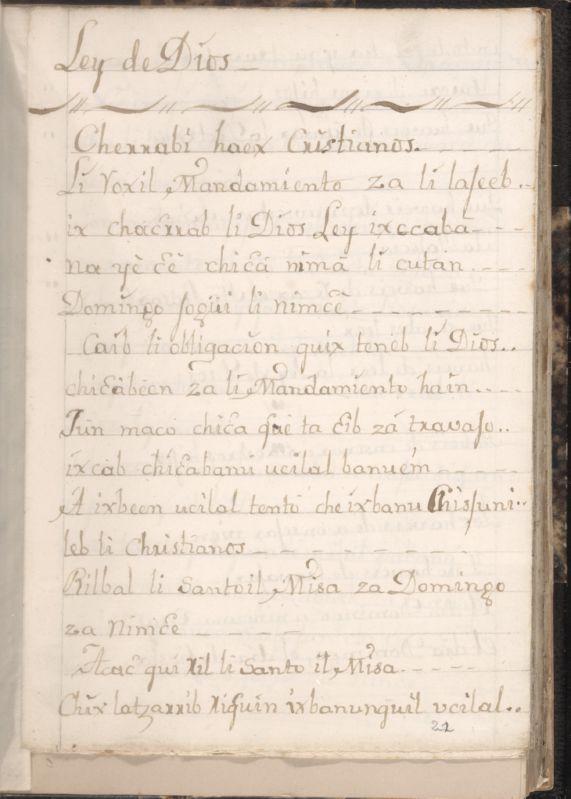 Ley de Dios
Cherrabi haêx Cristianos.
Li Voxil Mandamiento za li laseeb..
ix chacrrab li Dios Ley ixccaba
na yè cê chicâ nimâ li cutan
Domingo jogüi li nimcê
Caib li obligacion quix teneb li Dios..
chicàbeen za li Mandamiento hain..
Jun maco chica que ta cib zá travajo..
ixcab chicabanu ucilal banuém
A ixbeen ucilal tento che ixbanu Chisjuni..
leb li Christianos
Rilbal li Santo il Misa za Domingo
za Nimcê
Acac qui Xil li Santo il Misa.
Chix latzarrib Xiquin ixbanunquil ucilal..
21